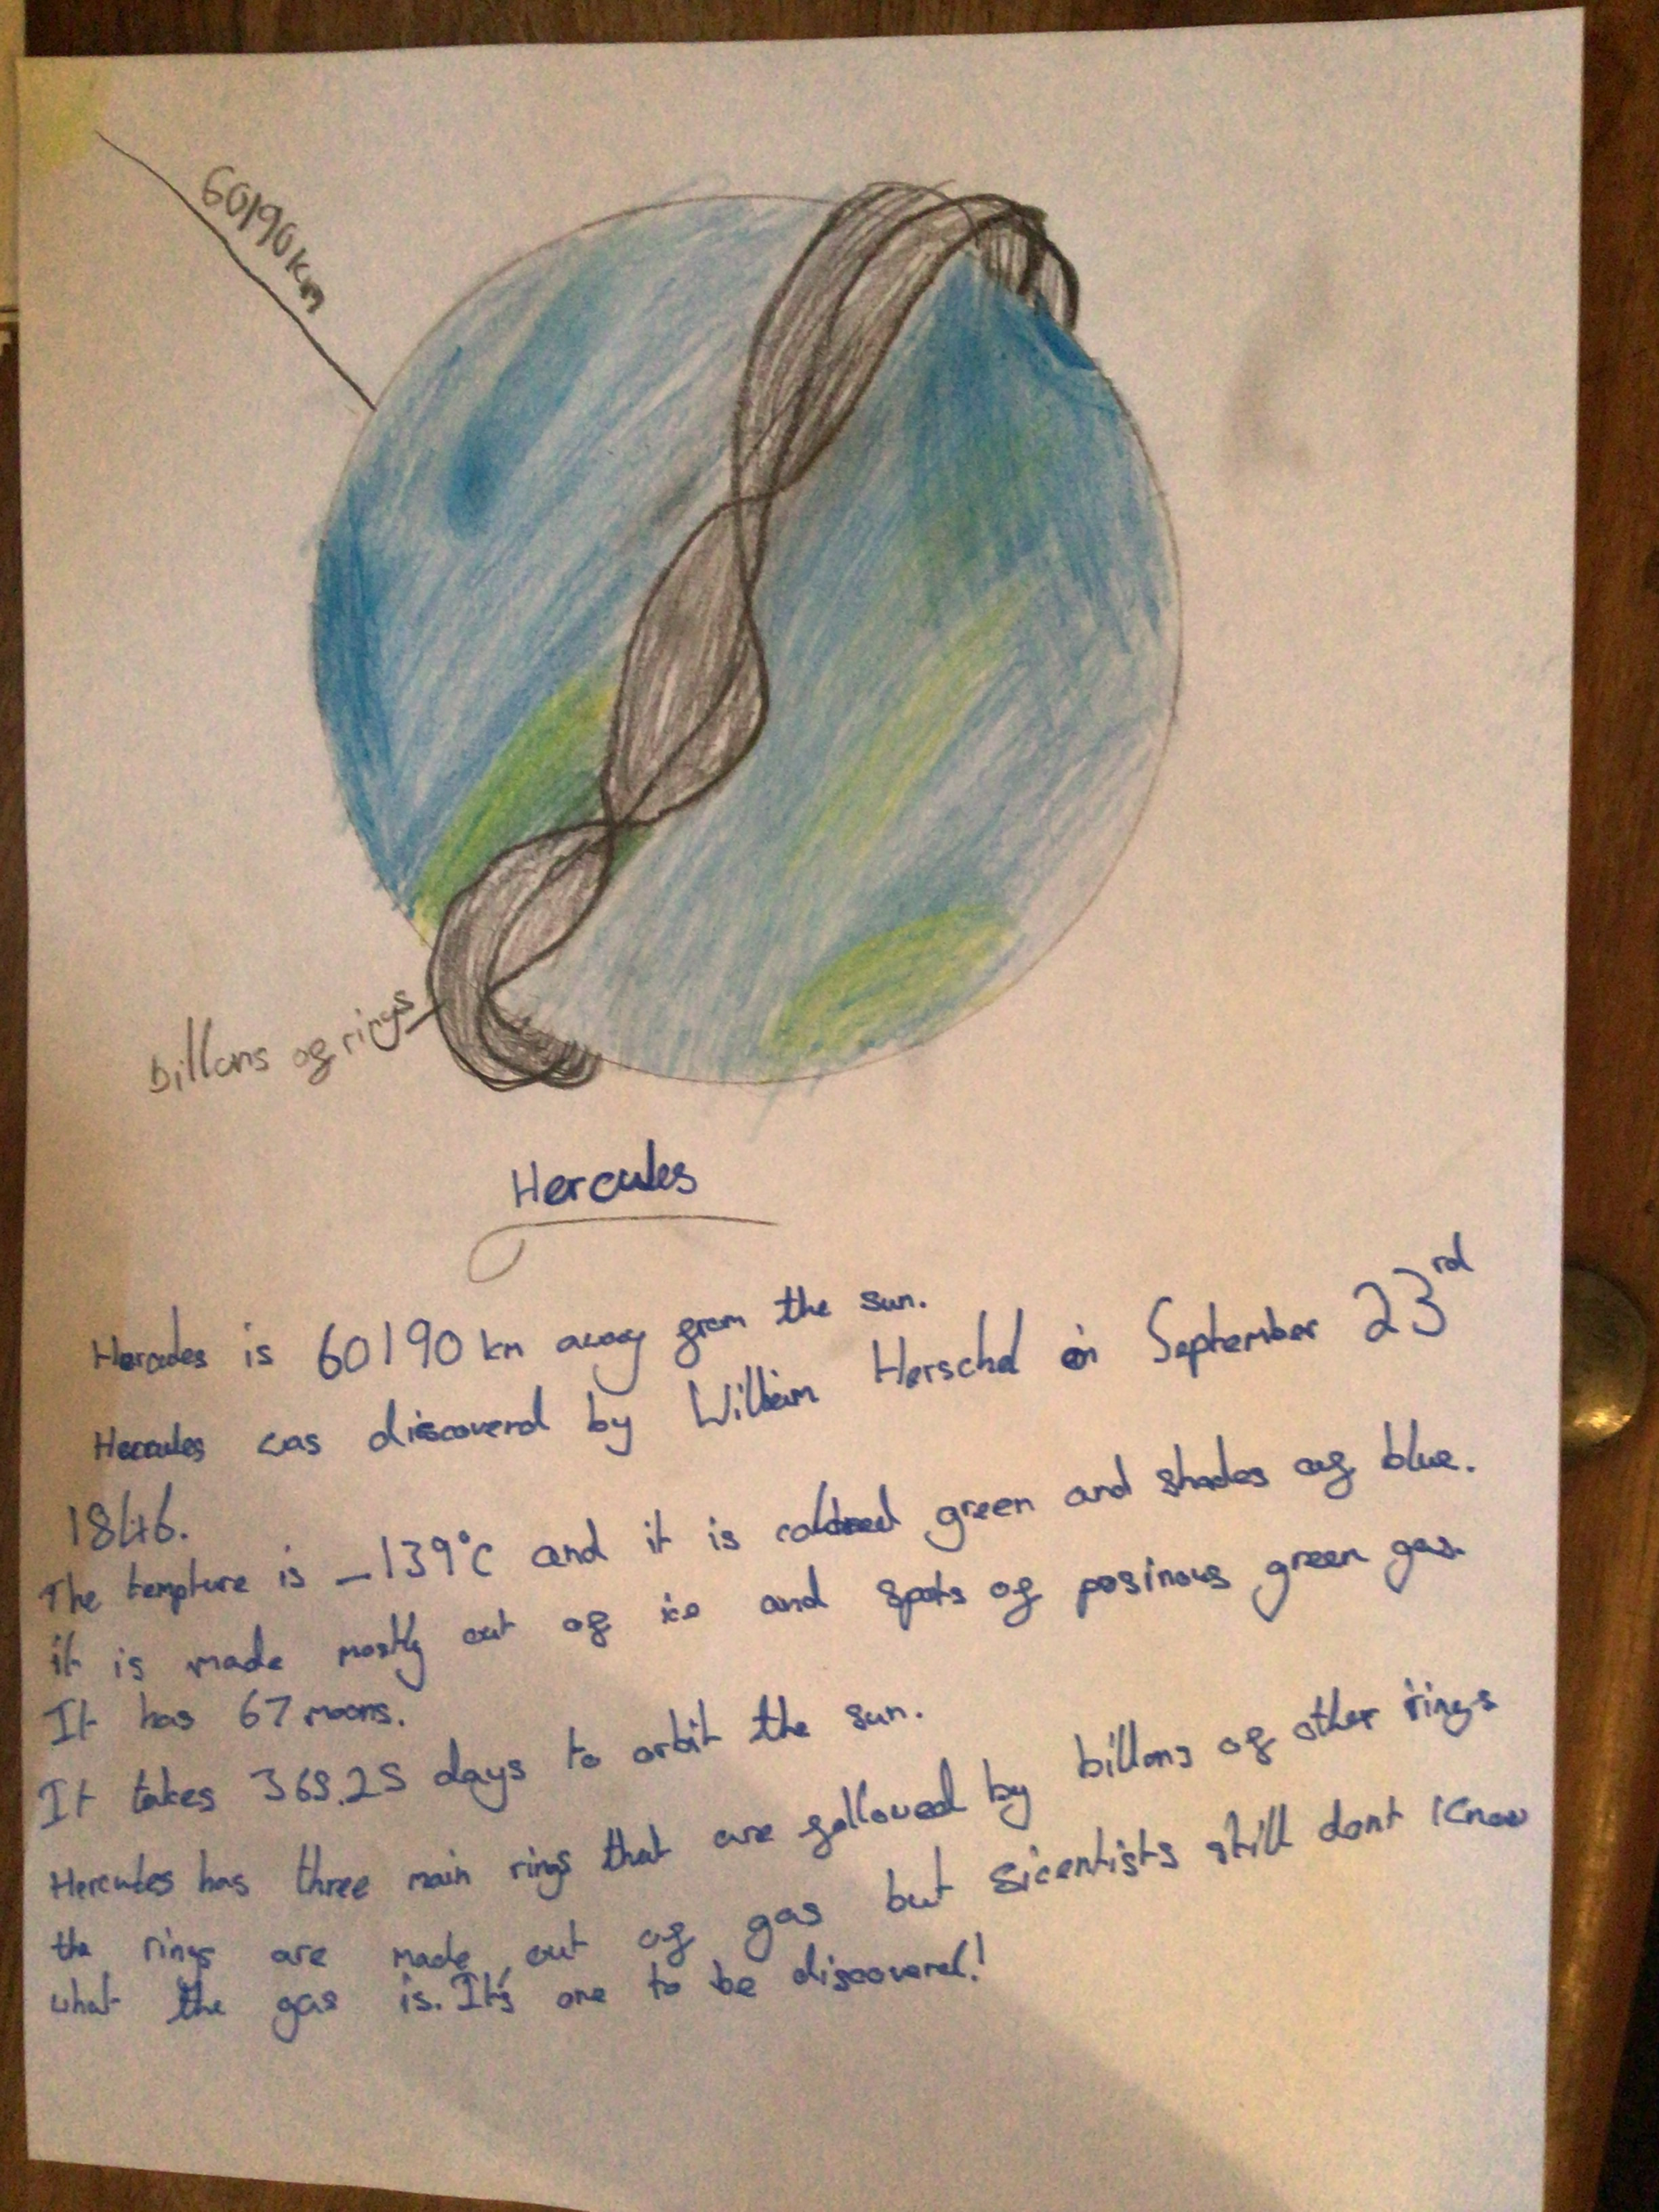 60190km
billons of rings
Hercules
Hercules is 60190 km away from the sun.
Hercules was discoverd by William Herschel in September 23rd
1846.
The tempture is -139°C and it is colored green and shades of blue.
it is made mostly out of ice and spots of posinous green gas.
It has 67 moons.
It takes 369.25 days to orbit the sun.
Hercules has three main rings that are followed by billons of other rings
the rings are made out of gas but sicentists still dont know
what the gas is. It's one to be discovered!